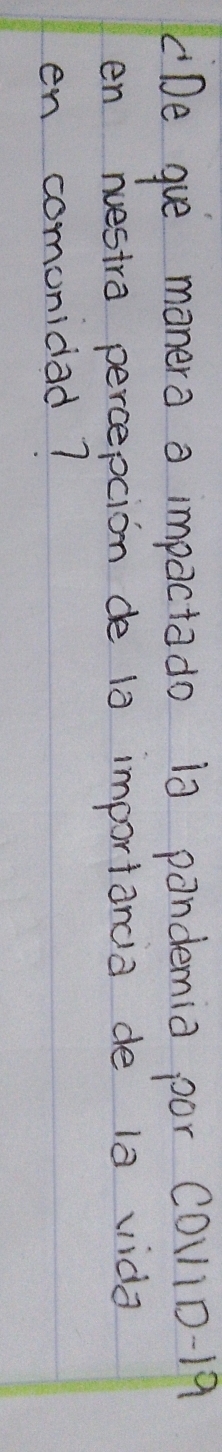 ¿De qué manera a impactado la pandemia por COVID-19
en nuestra percepción de la importancia de la vida
en comunidad?